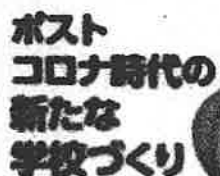 ポスト
コロナ時代の
新たな
学校づくり